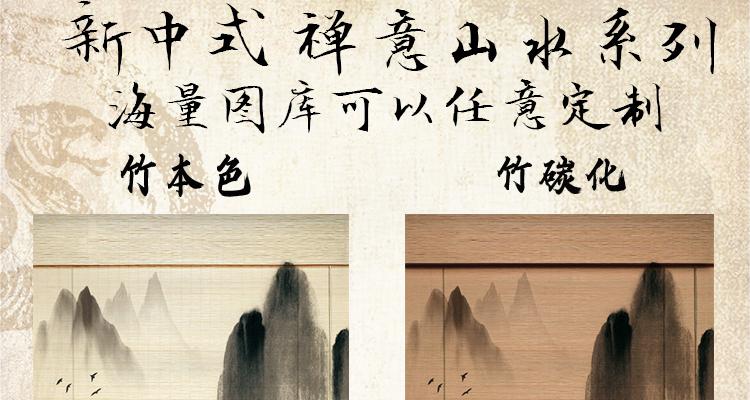 新中式禅意山水系列
海量图库可以任意定制
竹本色
竹碳化